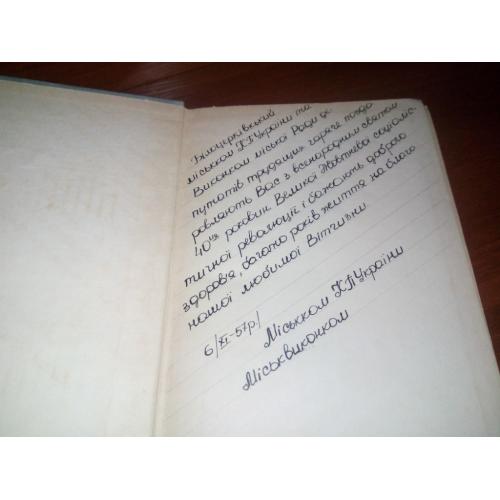 Білоцерківський
міськом КП України та
Виконком міської Ради де
путатів трудящих гаряче позд
ровляють Вас з всенародним святом
40ча роковин Великої Жовтневої соціаліс-
тичної революції і бажають доброго
здоров'я, багато років життя на благо
нашої любимої Вітчизни.
6/XI-57р/
Міськком КП України
Міськвиконком